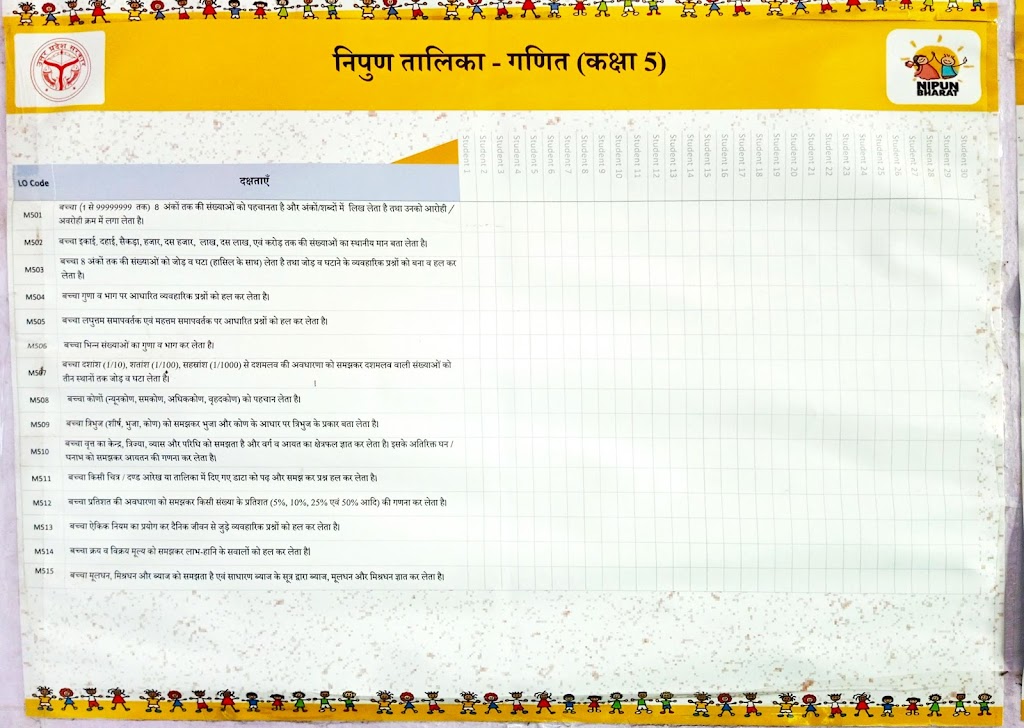 उत्तर प्रदेश सरकार
निपुण तालिका - गणित (कक्षा 5)
NIPUN
BHARAT
LO Code दक्षताएँ Student 1 Student 2 Student 3 Student 4 Student 5 Student 6 Student 7 Student 8 Student 9 Student 10 Student 11 Student 12 Student 13 Student 14 Student 15 Student 16 Student 17 Student 18 Student 19 Student 20 Student 21 Student 22 Student 23 Student 24 Student 25 Student 26 Student 27 Student 28 Student 29 Student 30
M501 बच्चा (1 से 99999999 तक) 8 अंकों तक की संख्याओं को पहचानता है और अंकों/शब्दों में लिख लेता है तथा उनको आरोही /
अवरोही क्रम में लगा लेता है।
M502 बच्चा इकाई, दहाई, सैकड़ा, हजार, दस हजार, लाख, दस लाख, एवं करोड़ तक की संख्याओं का स्थानीय मान बता लेता है।
M503 बच्चा 8 अंकों तक की संख्याओं को जोड़ व घटा (हासिल के साथ) लेता है तथा जोड़ व घटाने के व्यवहारिक प्रश्नों को बना व हल कर
लेता है।
M504 बच्चा गुणा व भाग पर आधारित व्यवहारिक प्रश्नों को हल कर लेता है।
M505 बच्चा लघुत्तम समापवर्तक एवं महत्तम समापवर्तक पर आधारित प्रश्नों को हल कर लेता है।
M506 बच्चा भिन्न संख्याओं का गुणा व भाग कर लेता है।
M507 बच्चा दशांश (1/10), शतांश (1/100), सहस्रांश (1/1000) से दशमलव की अवधारणा को समझकर दशमलव वाली संख्याओं को
तीन स्थानों तक जोड़ व घटा लेता है।
M508 बच्चा कोणों (न्यूनकोण, समकोण, अधिककोण, वृहदकोण) को पहचान लेता है।
M509 बच्चा त्रिभुज (शीर्ष, भुजा, कोण) को समझकर भुजा और कोण के आधार पर त्रिभुज के प्रकार बता लेता है।
M510 बच्चा वृत्त का केन्द्र, त्रिज्या, व्यास और परिधि को समझता है और वर्ग व आयत का क्षेत्रफल ज्ञात कर लेता है। इसके अतिरिक्त घन /
घनाभ को समझकर आयतन की गणना कर लेता है।
M511 बच्चा किसी चित्र / दण्ड आरेख या तालिका में दिए गए डाटा को पढ़ और समझ कर प्रश्न हल कर लेता है।
M512 बच्चा प्रतिशत की अवधारणा को समझकर किसी संख्या के प्रतिशत (5%, 10%, 25% एवं 50% आदि) की गणना कर लेता है।
M513 बच्चा ऐकिक नियम का प्रयोग कर दैनिक जीवन से जुड़े व्यवहारिक प्रश्नों को हल कर लेता है।
M514 बच्चा क्रय व विक्रय मूल्य को समझकर लाभ-हानि के सवालों को हल कर लेता है।
M515 बच्चा मूलधन, मिश्रधन और ब्याज को समझता है एवं साधारण ब्याज के सूत्र द्वारा ब्याज, मूलधन और मिश्रधन ज्ञात कर लेता है।